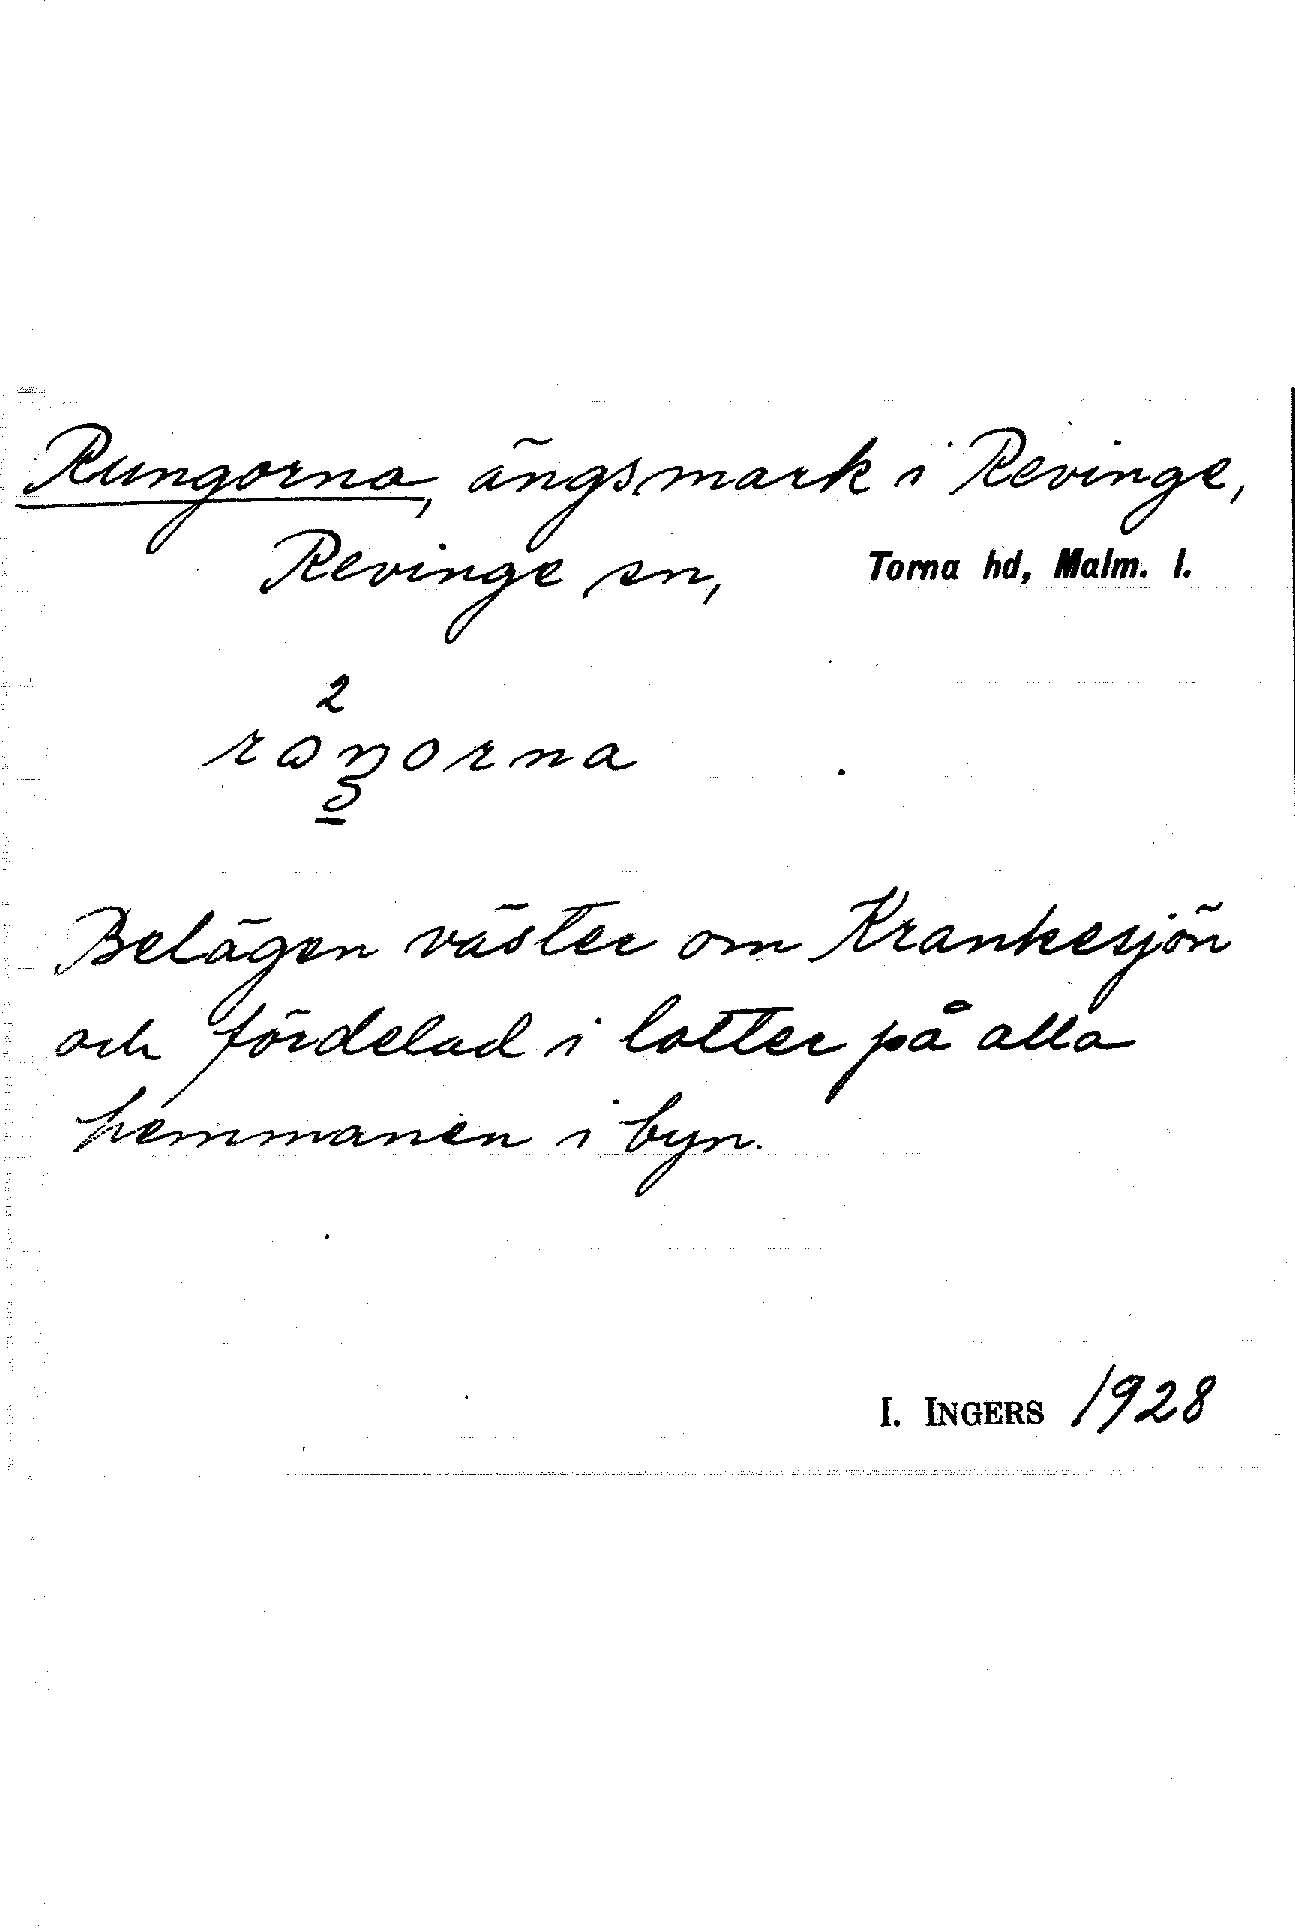 Rungorna, ängsmark i Revinge,
Revinge sn, Torna hd, Malm. l.
2
raŋorna
Belägen väster om Krankesjön
och fördelad i lotter på alla
hemmanen i byn.
I. INGERS 1928